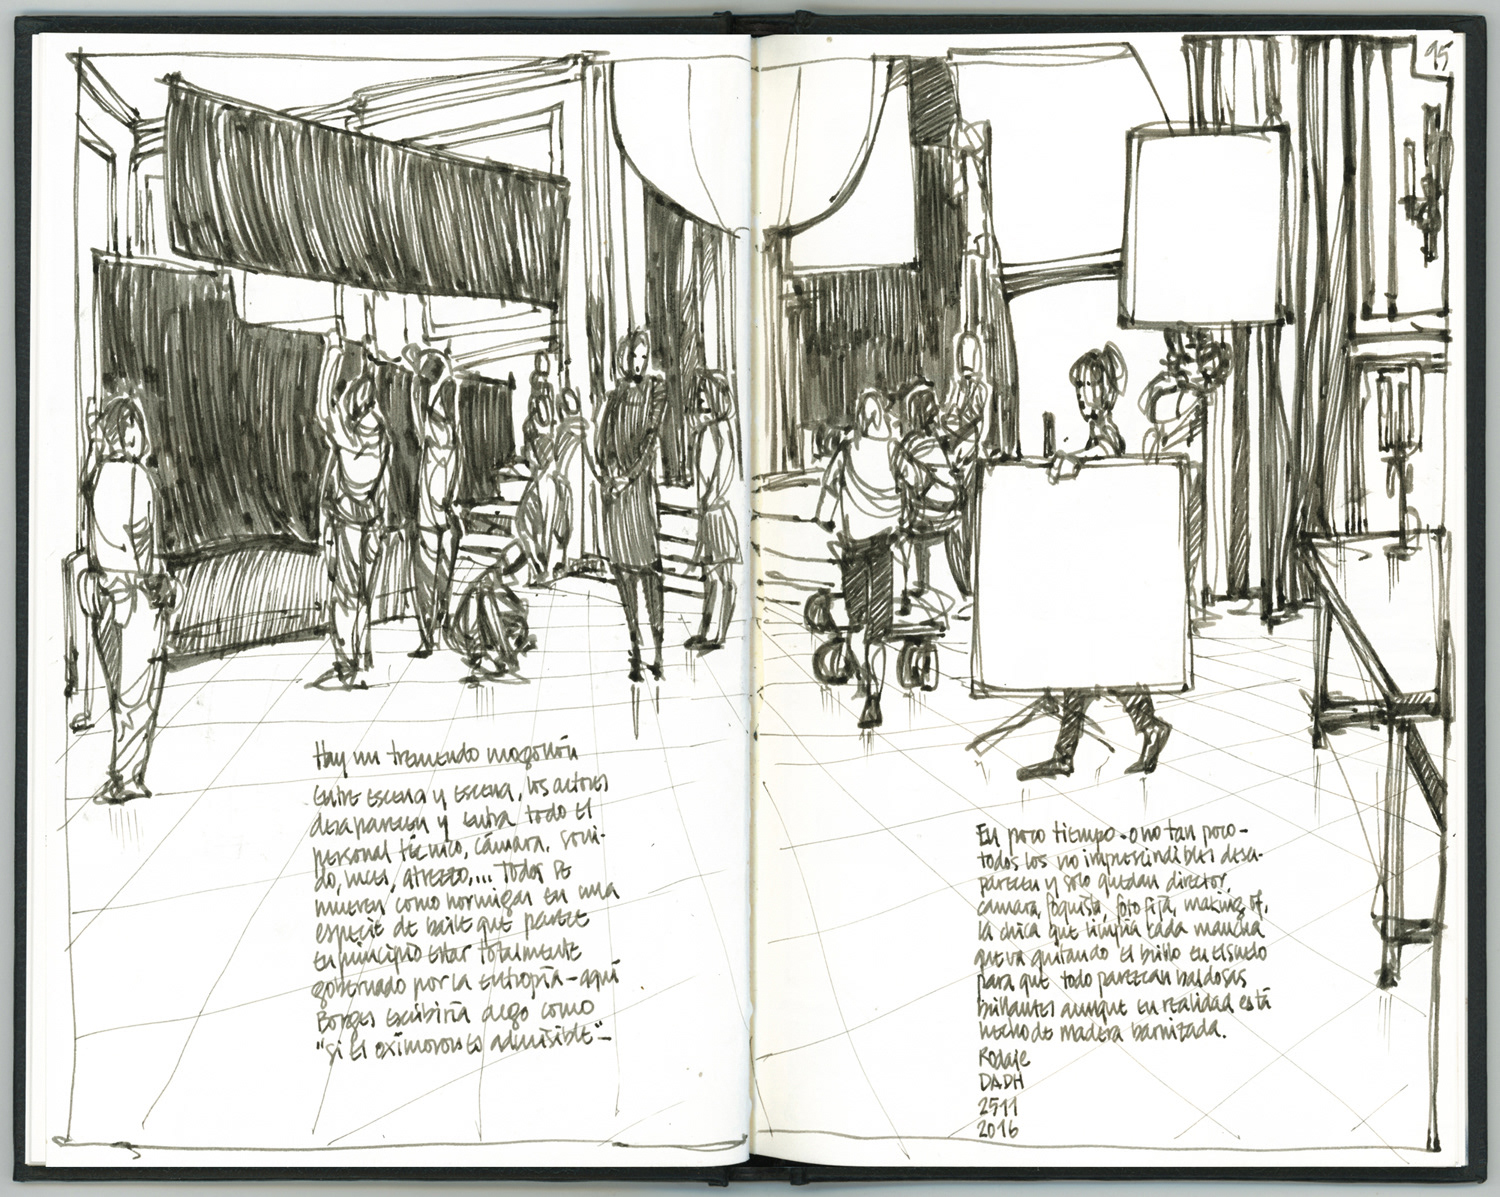 95
Hay un tremendo mogollón
entre escena y escena, los actores
desaparecen y entra todo el
personal técnico, cámara, soni-
do, luces, atrezzo,... Todos se
mueven como hormigas en una
especie de baile que parece
en principio estar totalmente
gobernado por la entropía - aquí
Borges escribiría algo como
"si el oxímoron es admisible" -
En poco tiempo - o no tan poco -
todos los no imprescindibles desa-
parecen y solo quedan director,
cámara, foquista, foto fija, making of,
la chica que limpia cada mancha
que va quitando el brillo en el suelo
para que todo parezcan baldosas
brillantes aunque en realidad está
hecho de madera barnizada.
Rodaje
DADH
2511
2016